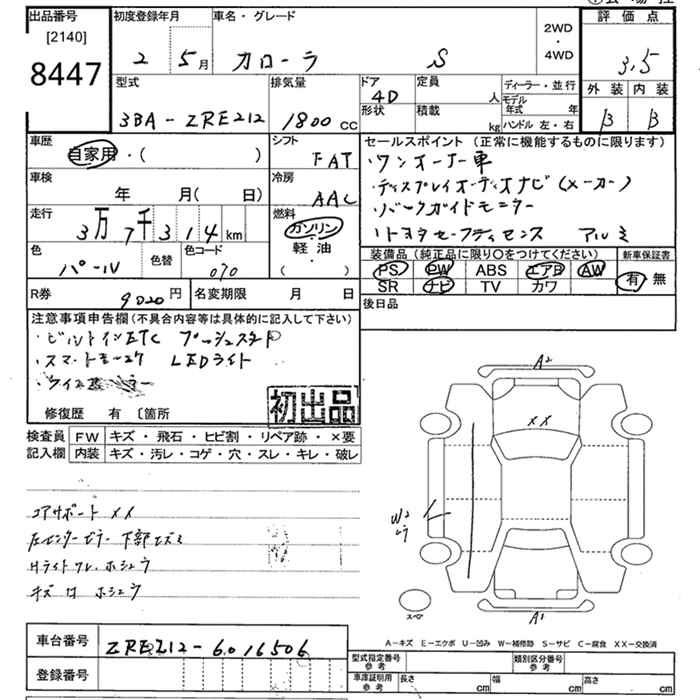 出品番号 初度登録年月 車名・グレード 2WD・4WD 評価点
[2140]
8447
2 5月 カローラ S 3.5
型式 排気量 ドア 定員 ディーラー・並行 外装 内装
4D 人 モデル年式 年
形状 積載 kg ハンドル 左・右
3BA-ZRE212 1800cc B B
車歴 シフト セールスポイント (正常に機能するものに限ります)
自家用・( ) FAT ・ワンオーナー車
車検 冷房 ・ディスプレイオーディオナビ(メーカー)
年 月( 日) AAC ・バックガイドモニター
走行 燃料 ・トヨタセーフティセンス アルミ
3万7千314km ガソリン・軽油・( )
色 色替 色コード 装備品 (純正品に限り○をつけてください) 新車保証書
パール 070 PS PW ABS エアB AW 有 無
SR ナビ TV カワ
R券 9020円 名変期限 月 日 後日品
注意事項申告欄(不具合内容等は具体的に記入して下さい)
・ビルトインETC プッシュスタート
・スマートキー2ケ LEDライト
修復歴 有 〔箇所
初出品
検査員 FW キズ・飛石・ヒビ割・リペア跡・×要
記入欄 内装 キズ・汚レ・コゲ・穴・スレ・キレ・破レ
コアサポート XX
左センターピラー下部エズミ
Hライトワレ、ホシュウ
キズ有 ホシュウ
A2
XX
W2
スペア
A1
A-キズ E-エクボ U-凹み W-補修跡 S-サビ C-腐食 XX-交換済
車台番号 ZRE212-6016506
登録番号
型式指定番号 参考 類別区分番号 参考
車庫証明用 参考 長さ cm 幅 cm 高さ cm